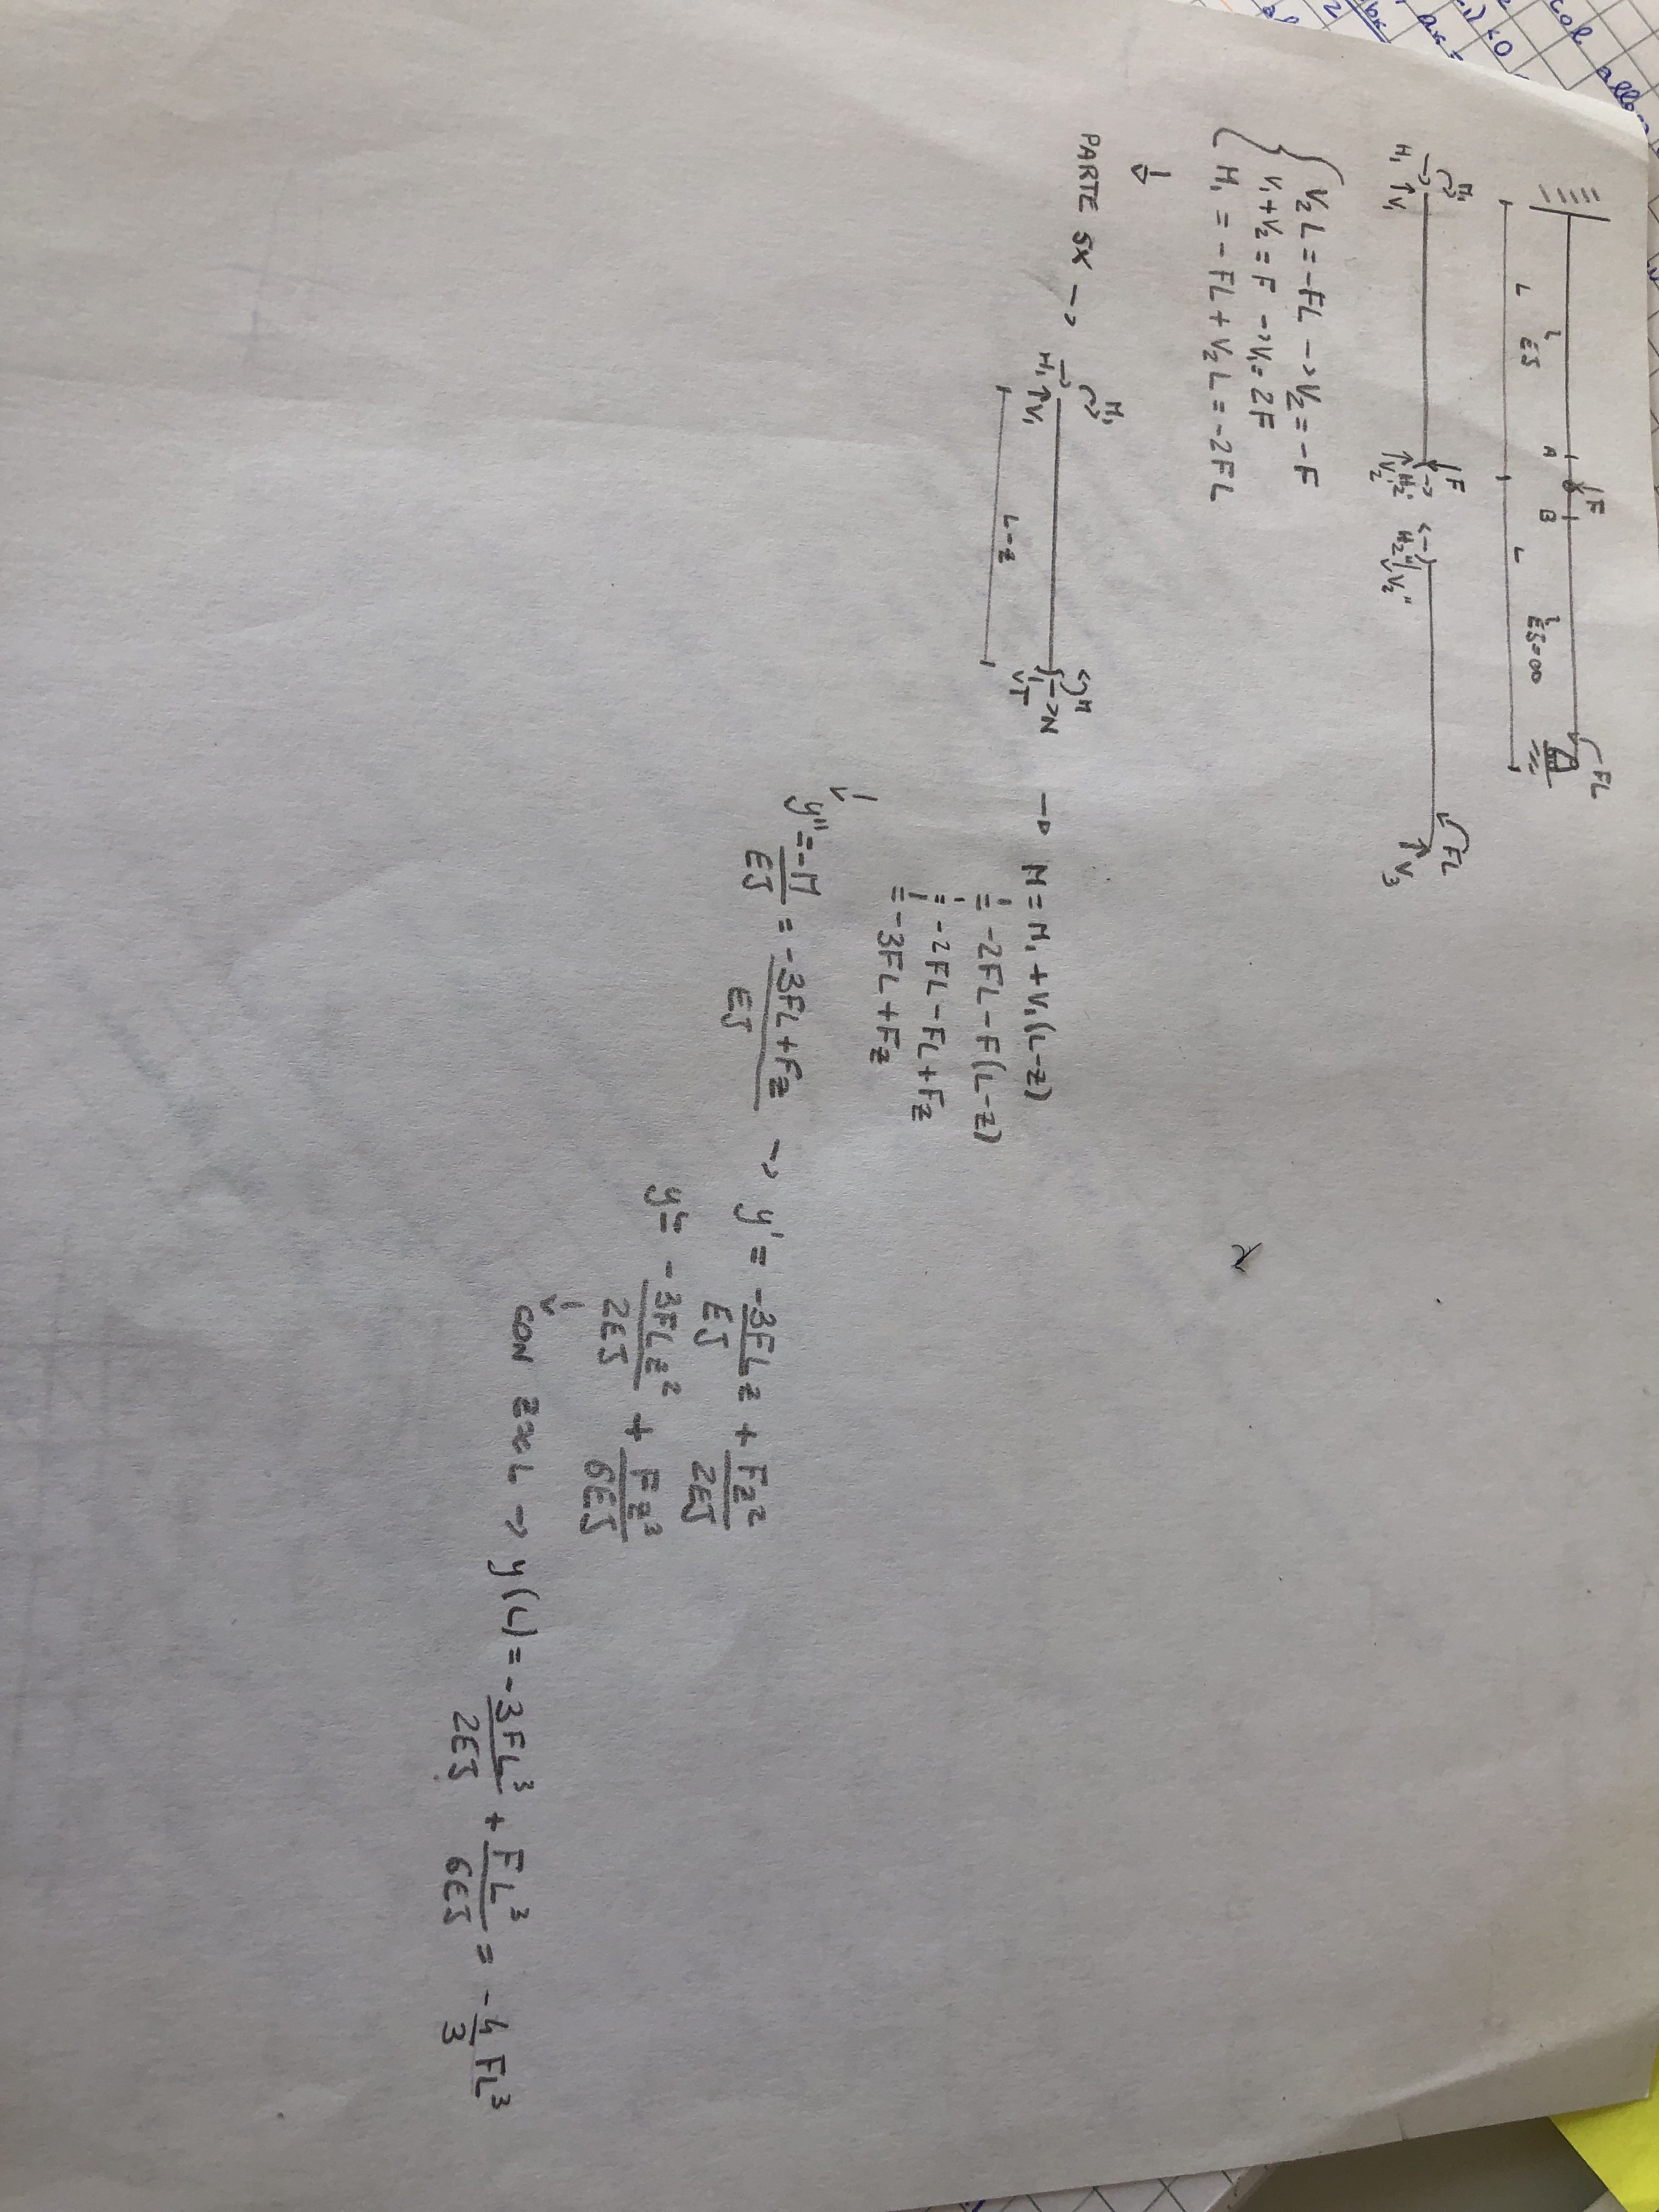 F
FL
A
B
L
EJ
L
EJ=∞
M₁
F
FL
H₁
V₁
H₂'
V₂'
H₂"
V₂"
V₃
V₂L = -FL -> V₂ = -F
V₁ + V₂ = F -> V₁ = 2F
M₁ = -FL + V₂L = -2FL
PARTE SX ->
M₁
H₁
V₁
M
N
T
L-z
-> M = M₁ + V₁(L-z)
= -2FL - F(L-z)
= -2FL - FL + Fz
= -3FL + Fz
y" = -M/EJ = -3FL+Fz/EJ -> y' = -3FLz/EJ + Fz²/2EJ
y = -3FLz²/2EJ + Fz³/6EJ
CON z=L -> y(L) = -3FL³/2EJ + FL³/6EJ = -4/3 FL³